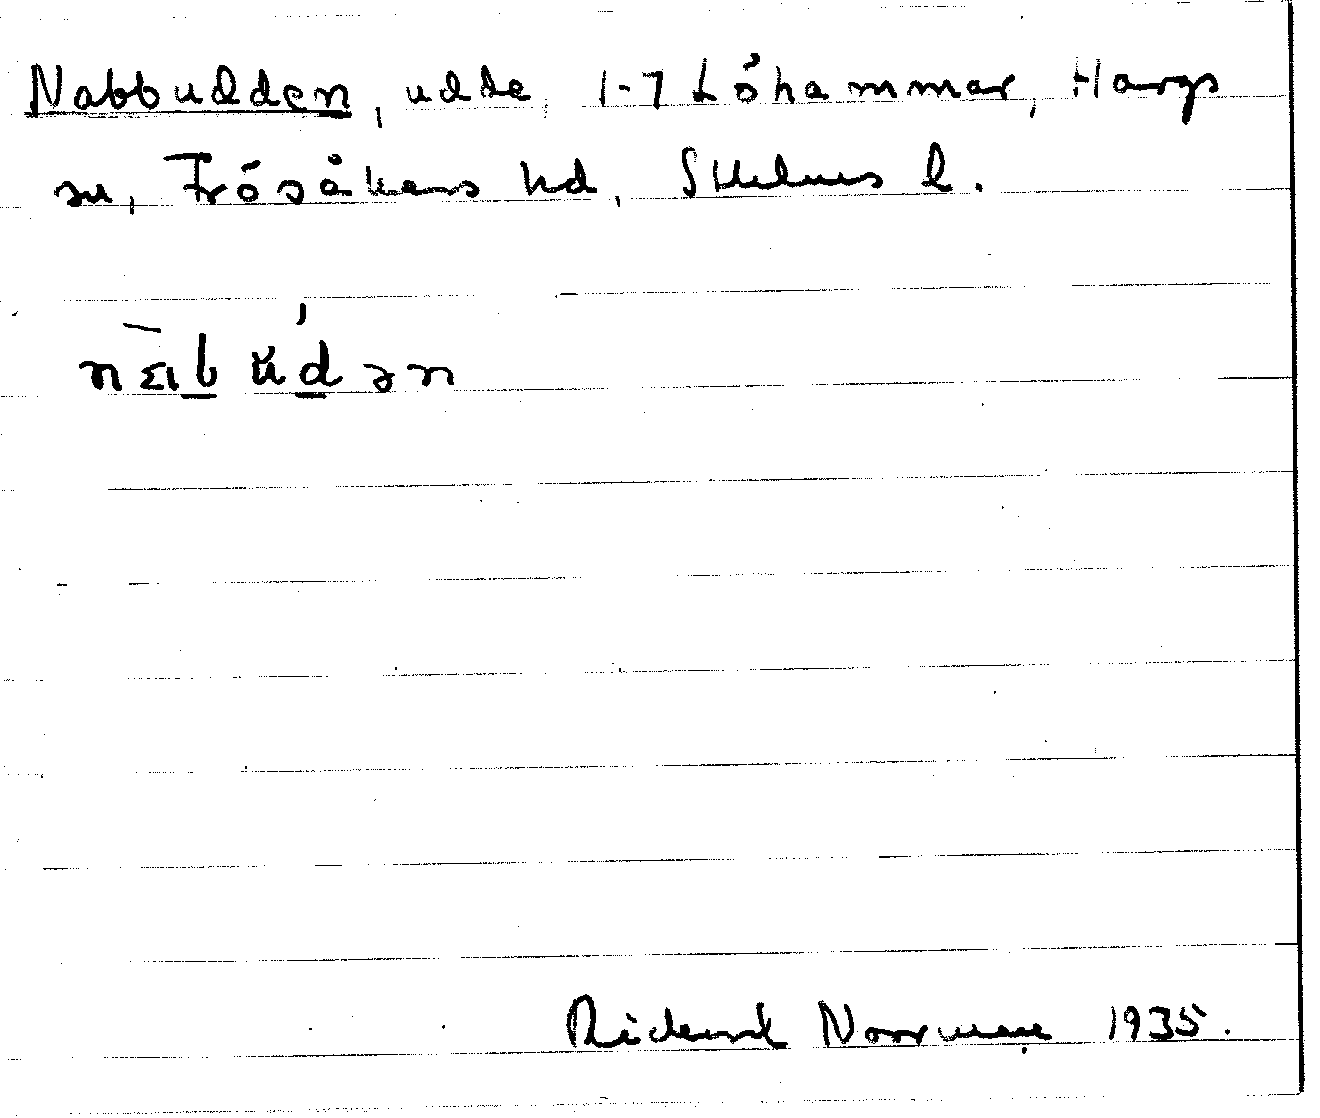 Nabbudden, udde, 1-7 Löhammar, Hargs
sn, Frösåkers hd, Sthlms l.
Rickard Norrman 1935.